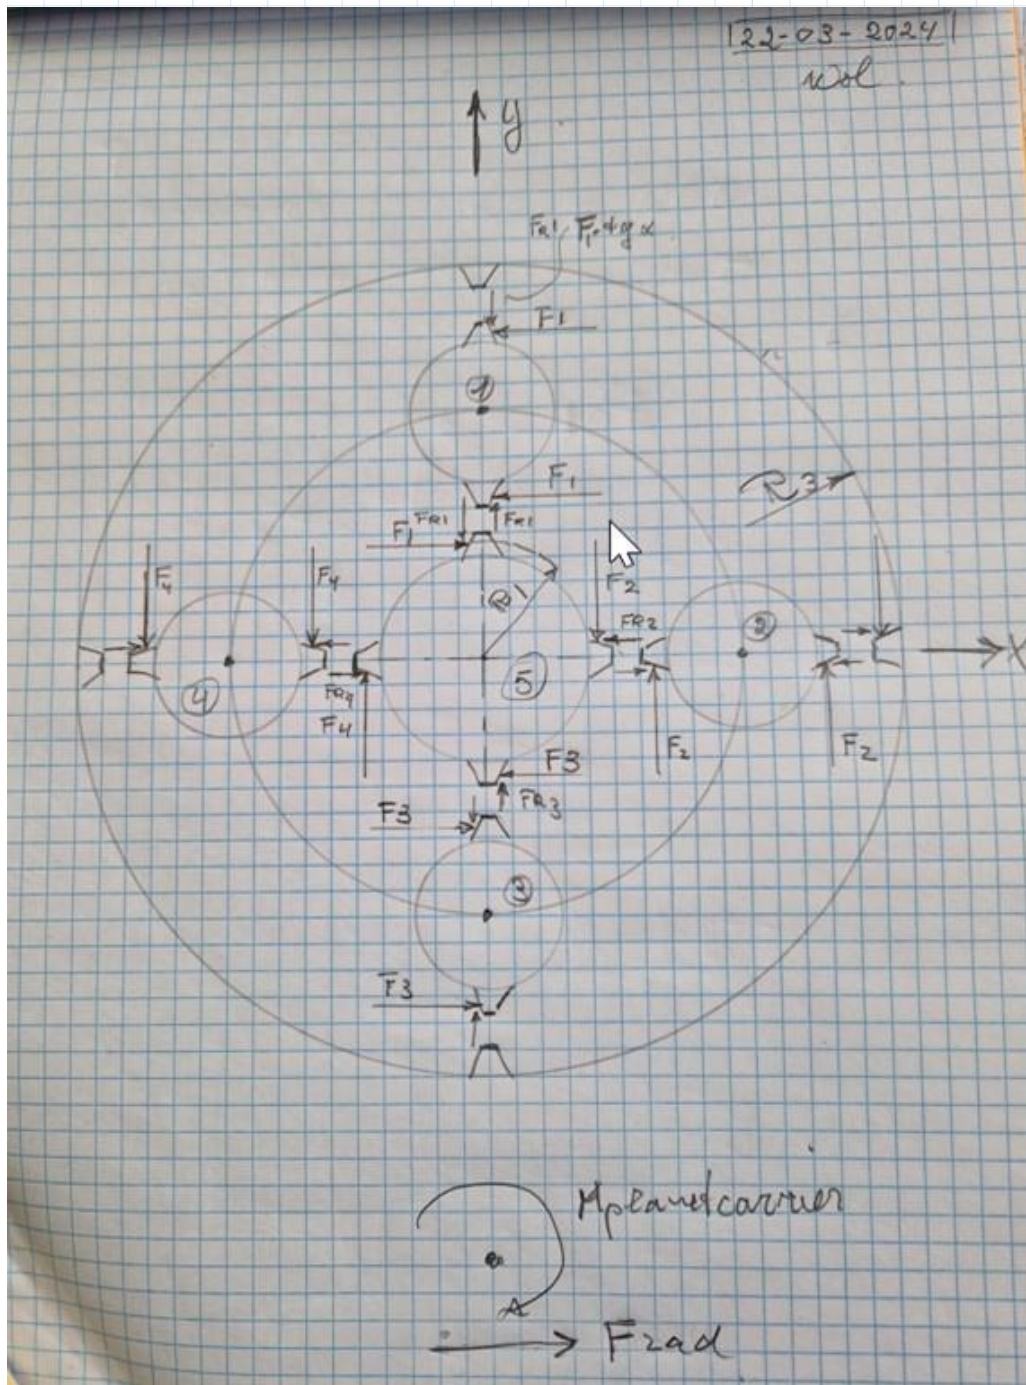 22-03-2024
Wol.
y
FR1 F1.tg α
F1
1
F1
FR1
FR1
F1
R3
F4
F4
F2
R1
FR2
2
X
5
4
FR4
F4
F2
F2
F3
FR3
F3
3
F3
Mplanetcarrier
Frad